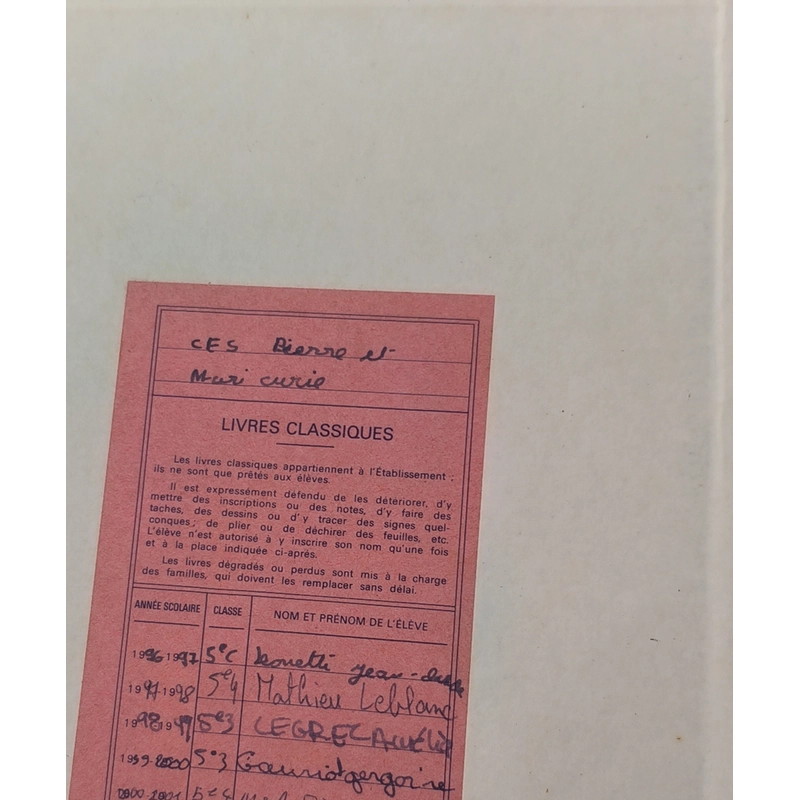 CES Pierre et
Mari curie
LIVRES CLASSIQUES
Les livres classiques appartiennent à l'Établissement ;
ils ne sont que prêtés aux élèves.
Il est expressément défendu de les détériorer, d'y
mettre des inscriptions ou des notes, d'y faire des
taches, des dessins ou d'y tracer des signes quel-
conques ; de plier ou de déchirer des feuilles, etc.
L'élève n'est autorisé à y inscrire son nom qu'une fois
et à la place indiquée ci-après.
Les livres dégradés ou perdus sont mis à la charge
des familles, qui doivent les remplacer sans délai.
ANNÉE SCOLAIRE CLASSE NOM ET PRÉNOM DE L'ÉLÈVE
1996-1997 5eC
1997-1998 5e4 Mathieu Leblanc
1998-1999 5e3 LEGREC Aurélie
1999-2000 5e3
2000-2001